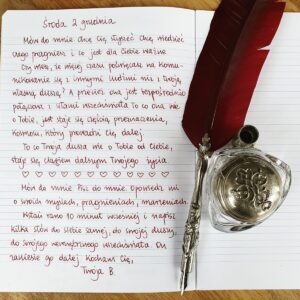 Środa 2 grudnia
Mów do mnie chcę Cię słyszeć Chcę wiedzieć
czego pragniesz i co jest dla Ciebie ważne.
Czy wiesz, że więcej czasu poświęcasz na komu-
nikowanie się z innymi ludźmi niż z Twoją
własną duszą? A przecież ona jest bezpośrednio
połączona z siłami wszechświata. To co ona wie
o Tobie, jest staje się częścią przeznaczenia,
Kosmosu, który prowadzi Cię dalej.
To co Twoja dusza wie o Tobie od Ciebie,
staje się ciągiem dalszym Twojego życia.
Mów do mnie. Pisz do mnie. Opowiedz mi
o swoich myślach, pragnieniach, marzeniach.
Wstań rano 10 minut wcześniej i napisz
kilka słów do siebie samej, do swojej duszy,
do swojego wewnętrznego wszechświata. On
zaniesie go dalej. Kocham Cię,
Twoja B.